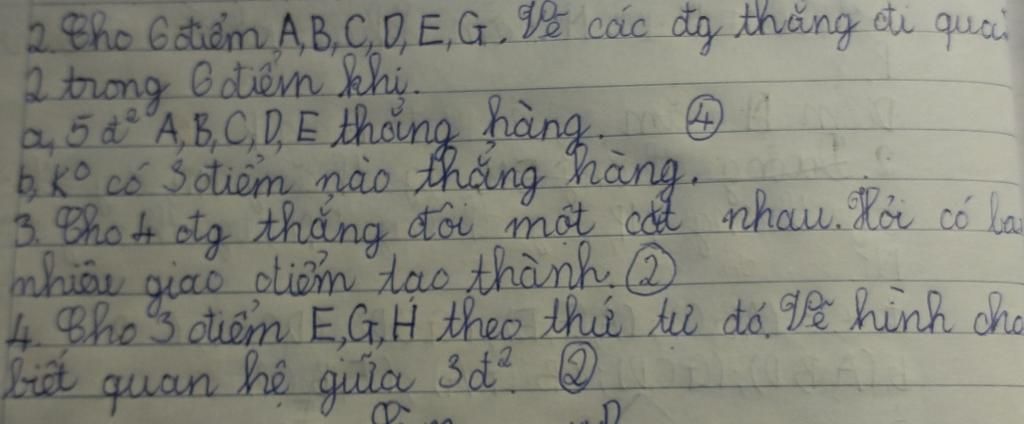 2. Cho 6 điểm A, B, C, D, E, G. Vẽ các đg thẳng đi qua
2 trong 6 điểm khi.
a, 5 đ² A, B, C, D, E thẳng hàng. ④
b, K⁰ có 3 điểm nào thẳng hàng.
3. Cho 4 đg thẳng đôi một cắt nhau. Hỏi có ba
nhiêu giao điểm tạo thành. ②
4. Cho 3 điểm E, G, H theo thứ tự đó. Vẽ hình cho
biết quan hệ giữa 3 đ². ②